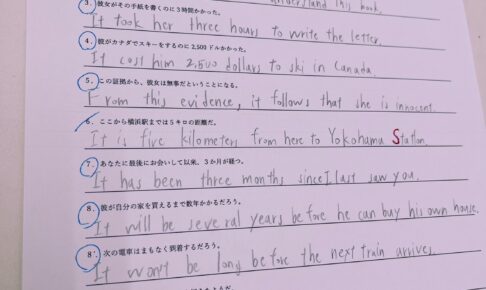 understand this book.
3. 彼女がその手紙を書くのに3時間かかった。
It took her three hours to write the letter.
4. 彼がカナダでスキーをするのに2,500ドルかかった。
It cost him 2,500 dollars to ski in Canada.
5. この証拠から、彼女は無罪だということになる。
From this evidence, it follows that she is innocent.
6. ここから横浜駅までは5キロの距離だ。
It is five kilometers from here to Yokohama Station.
7. あなたに最後にお会いして以来、3か月が経つ。
It has been three months since I last saw you.
8. 彼が自分の家を買えるまで数年かかるだろう。
It will be several years before he can buy his own house.
8'. 次の電車はまもなく到着するだろう。
It won't be long before the next train arrives.